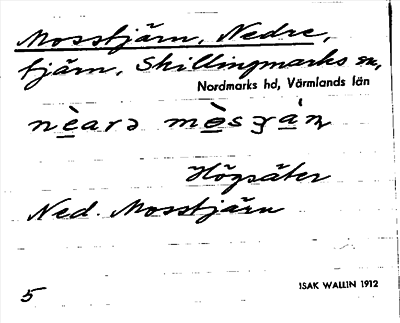 Mosstjärn, Nedre,
tjärn, Skillingmarks sn,
Nordmarks hd, Värmlands län
Högsäter
Ned. Mosstjärn
5 ISAK WALLIN 1912